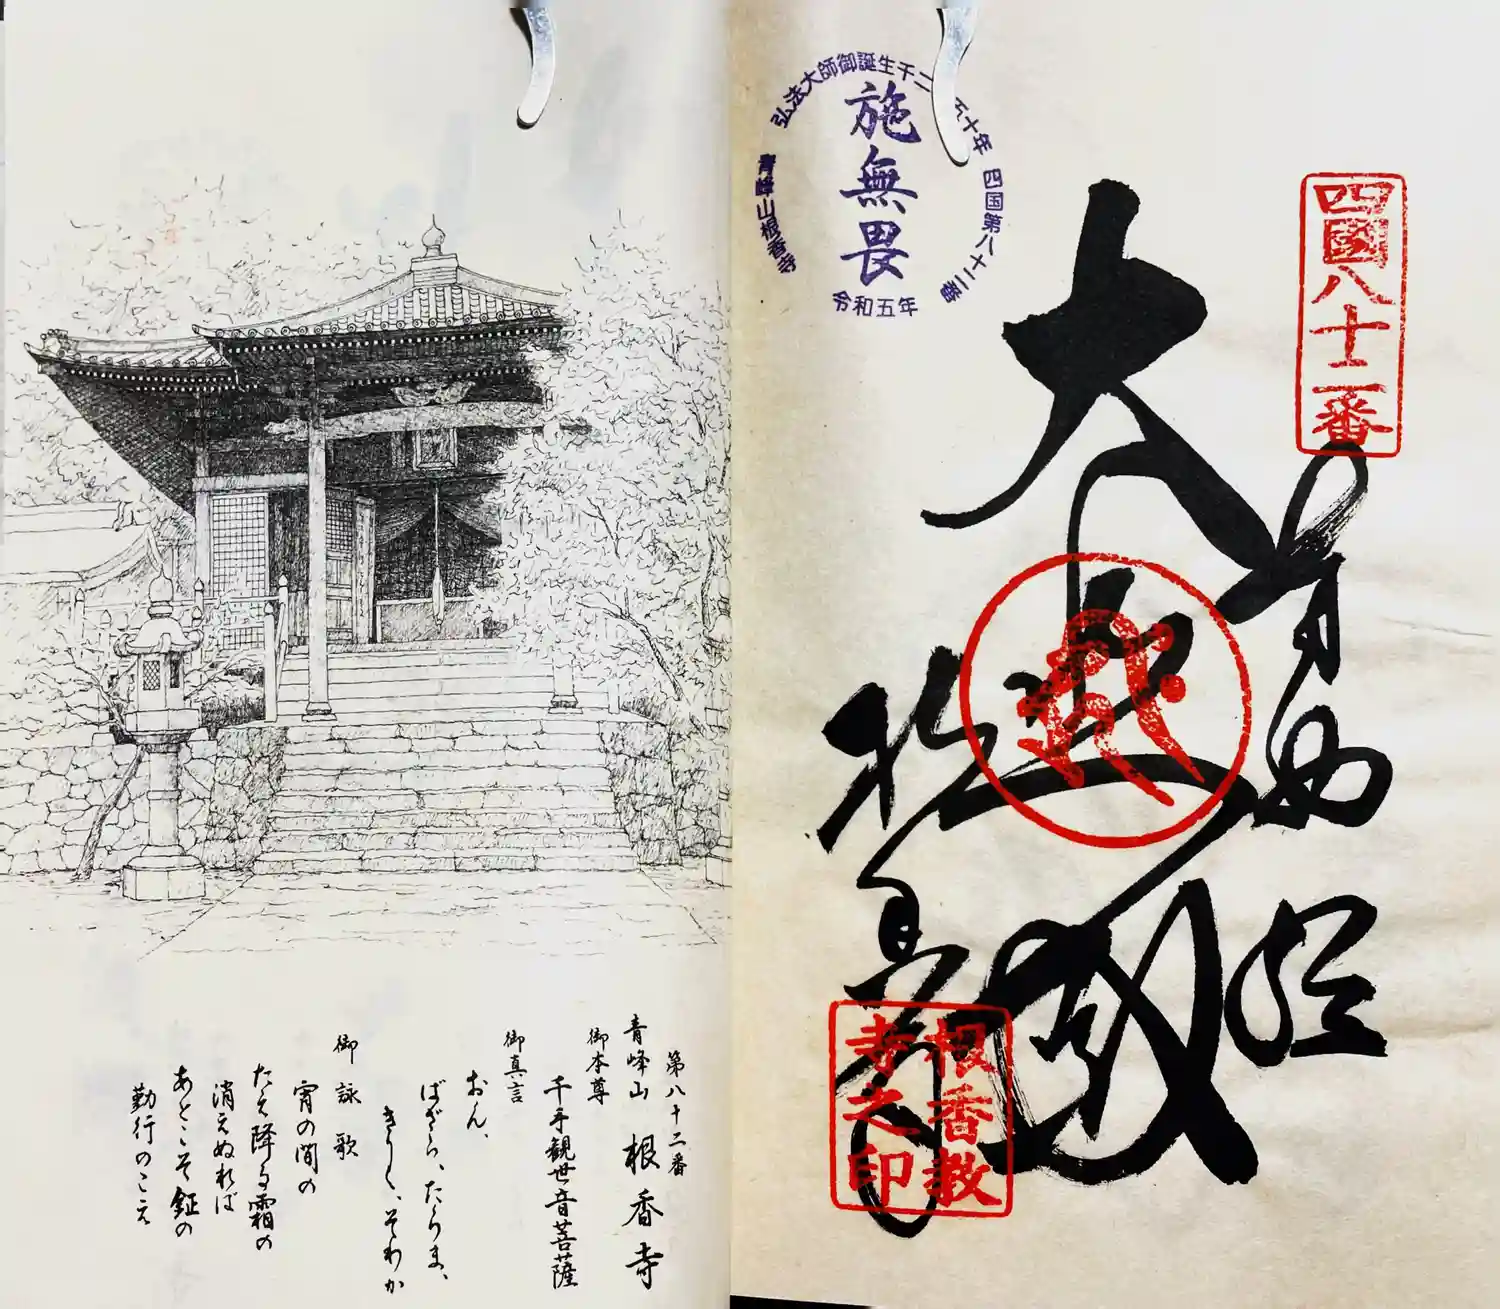 第八十二番
青峰山 根香寺
御本尊
千手観世音菩薩
御真言
おん、
ばざら、たらま、
きりく、そわか
御詠歌
宵の間の
たえ降る霜の
消えぬれば
あとこそ鉦の
勤行のこえ
四國八十二番
奉納経
大悲閣
根香寺
根香教
寺之印
弘法大師御誕生千二
五十年
四国第八十二番
青峰山根香寺
施無畏
令和五年